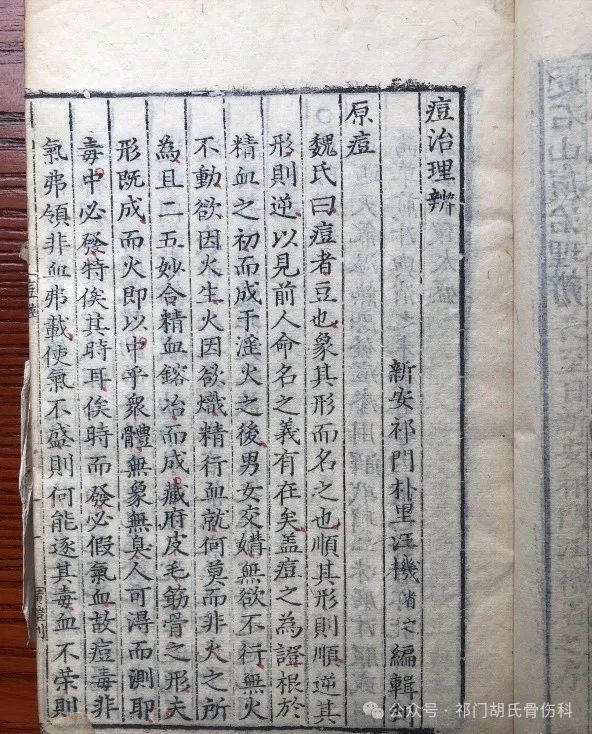 痘治理辨
新安祁門朴里汪機省之編輯
原痘
魏氏曰痘者豆也象其形而名之也順其形則順逆其
形則逆以見前人命名之義有在矣盖痘之為證根於
精血之初而成于淫火之後男女交媾無欲不行無火
不動欲因火生火因欲熾精行血就何莫而非火之所
為且二五妙合精血鎔冶而成藏府皮毛筋骨之形夫
形既成而火即以中乎衆體無象無臭人可淂而測耶
毒中必發特俟其時耳俟時而發必假氣血故痘毒非
氣弗領非血弗載使氣不盛則何能逐其毒血不荣則
公众号·祁门胡氏骨伤科